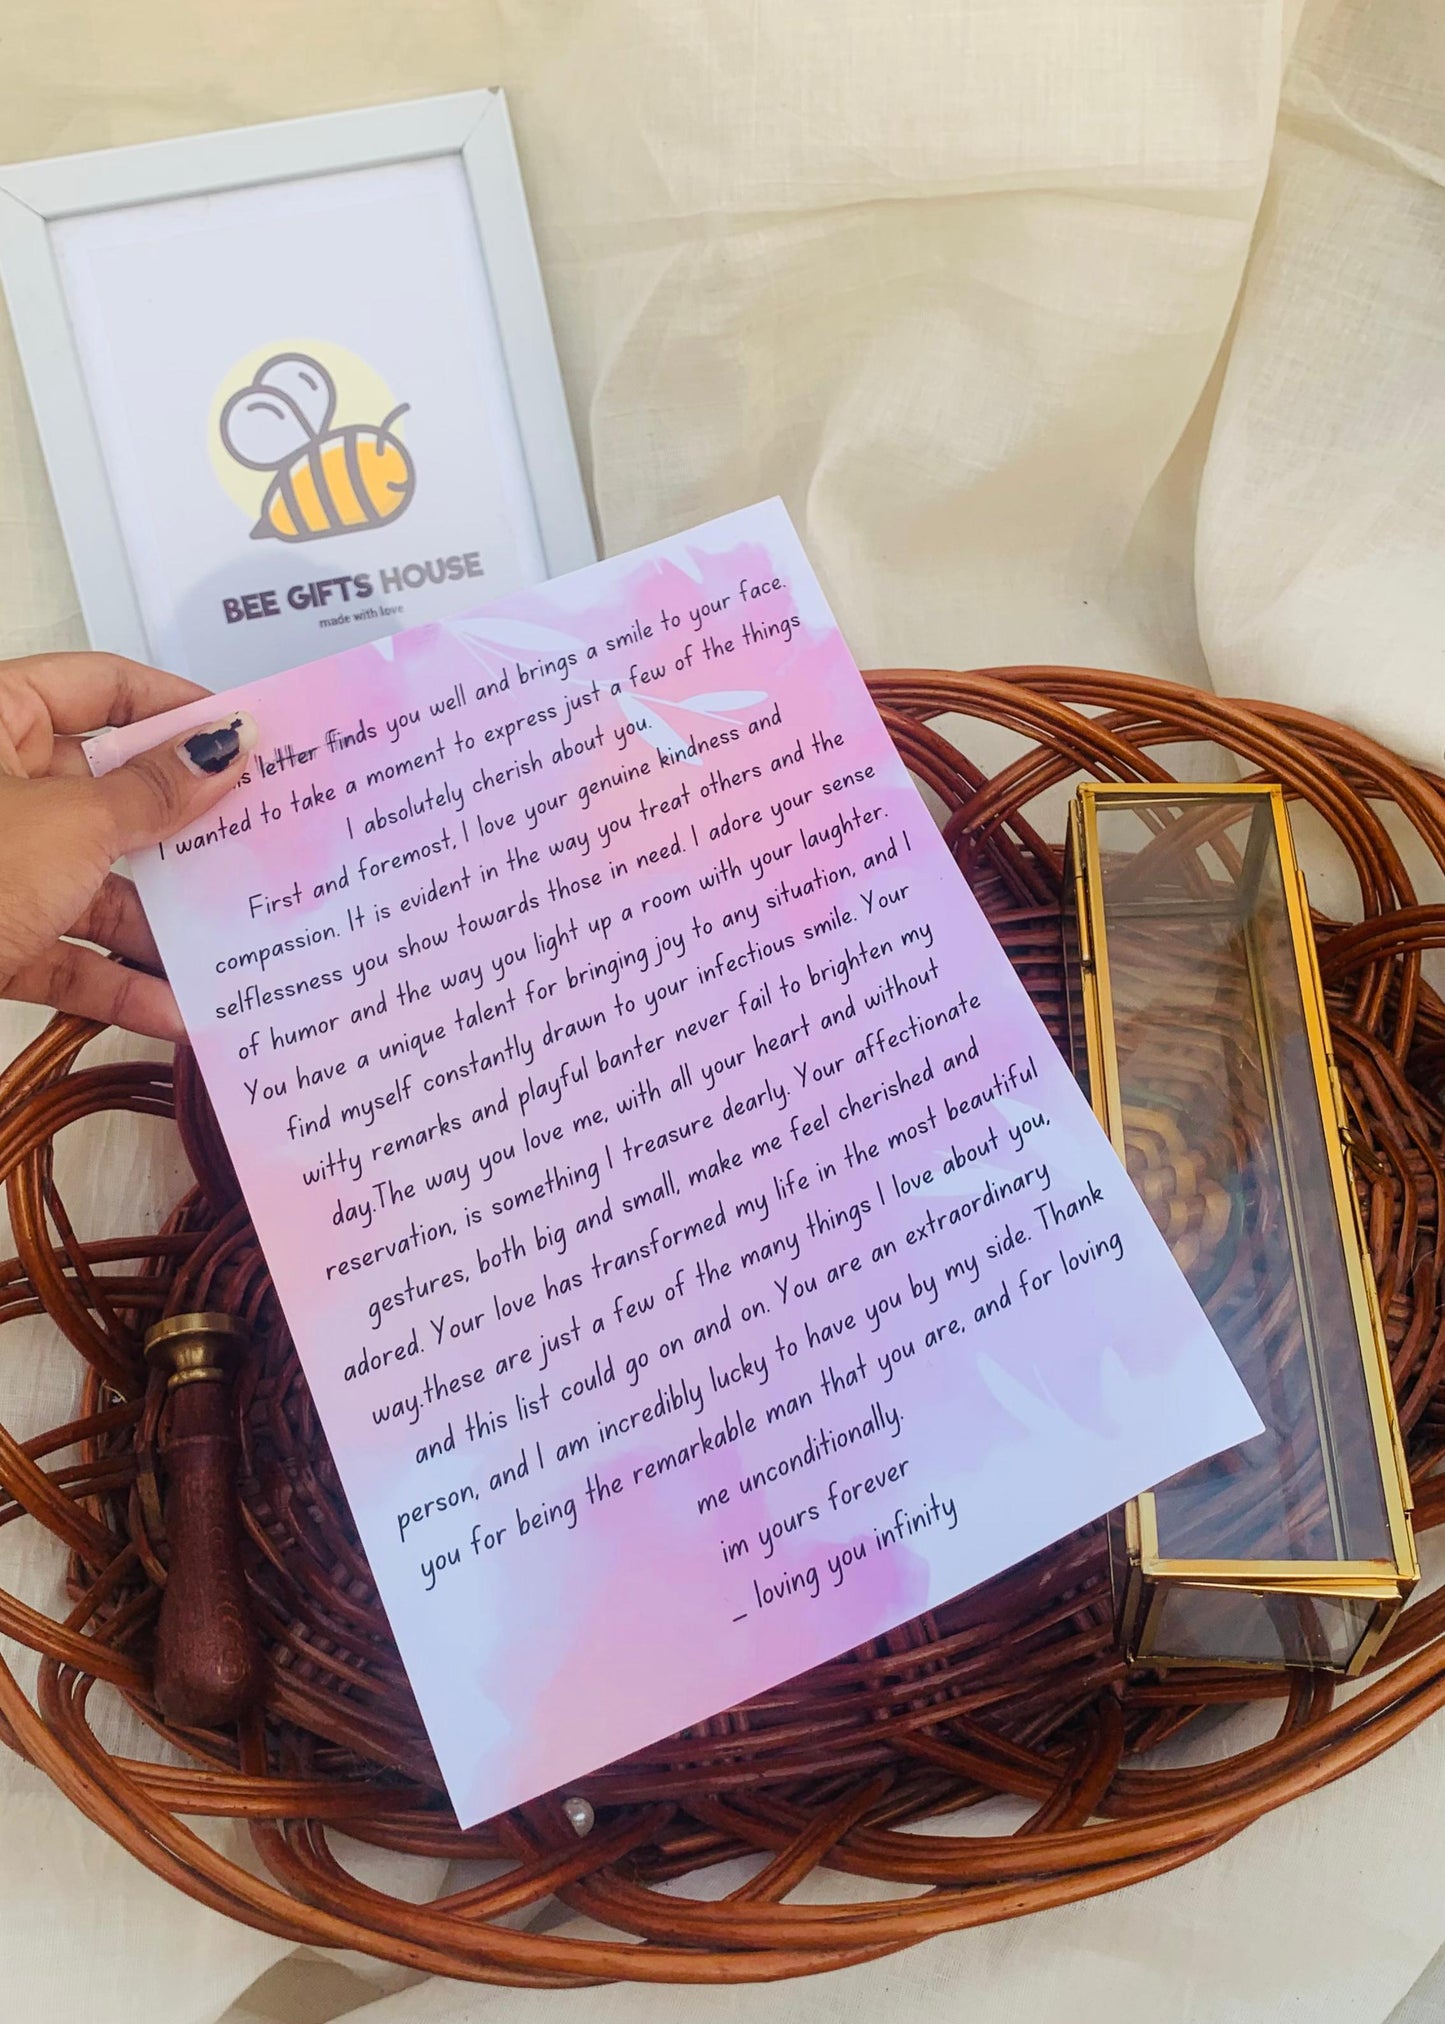 BEE GIFTS HOUSE
made with love
letter finds you well and brings a smile to your face.
I wanted to take a moment to express just a few of the things
I absolutely cherish about you.
First and foremost, I love your genuine kindness and
compassion. It is evident in the way you treat others and the
selflessness you show towards those in need. I adore your sense
of humor and the way you light up a room with your laughter.
You have a unique talent for bringing joy to any situation, and I
find myself constantly drawn to your infectious smile. Your
witty remarks and playful banter never fail to brighten my
day.The way you love me, with all your heart and without
reservation, is something I treasure dearly. Your affectionate
gestures, both big and small, make me feel cherished and
adored. Your love has transformed my life in the most beautiful
way.these are just a few of the many things I love about you,
and this list could go on and on. You are an extraordinary
person, and I am incredibly lucky to have you by my side. Thank
you for being the remarkable man that you are, and for loving
me unconditionally.
im yours forever
_ loving you infinity